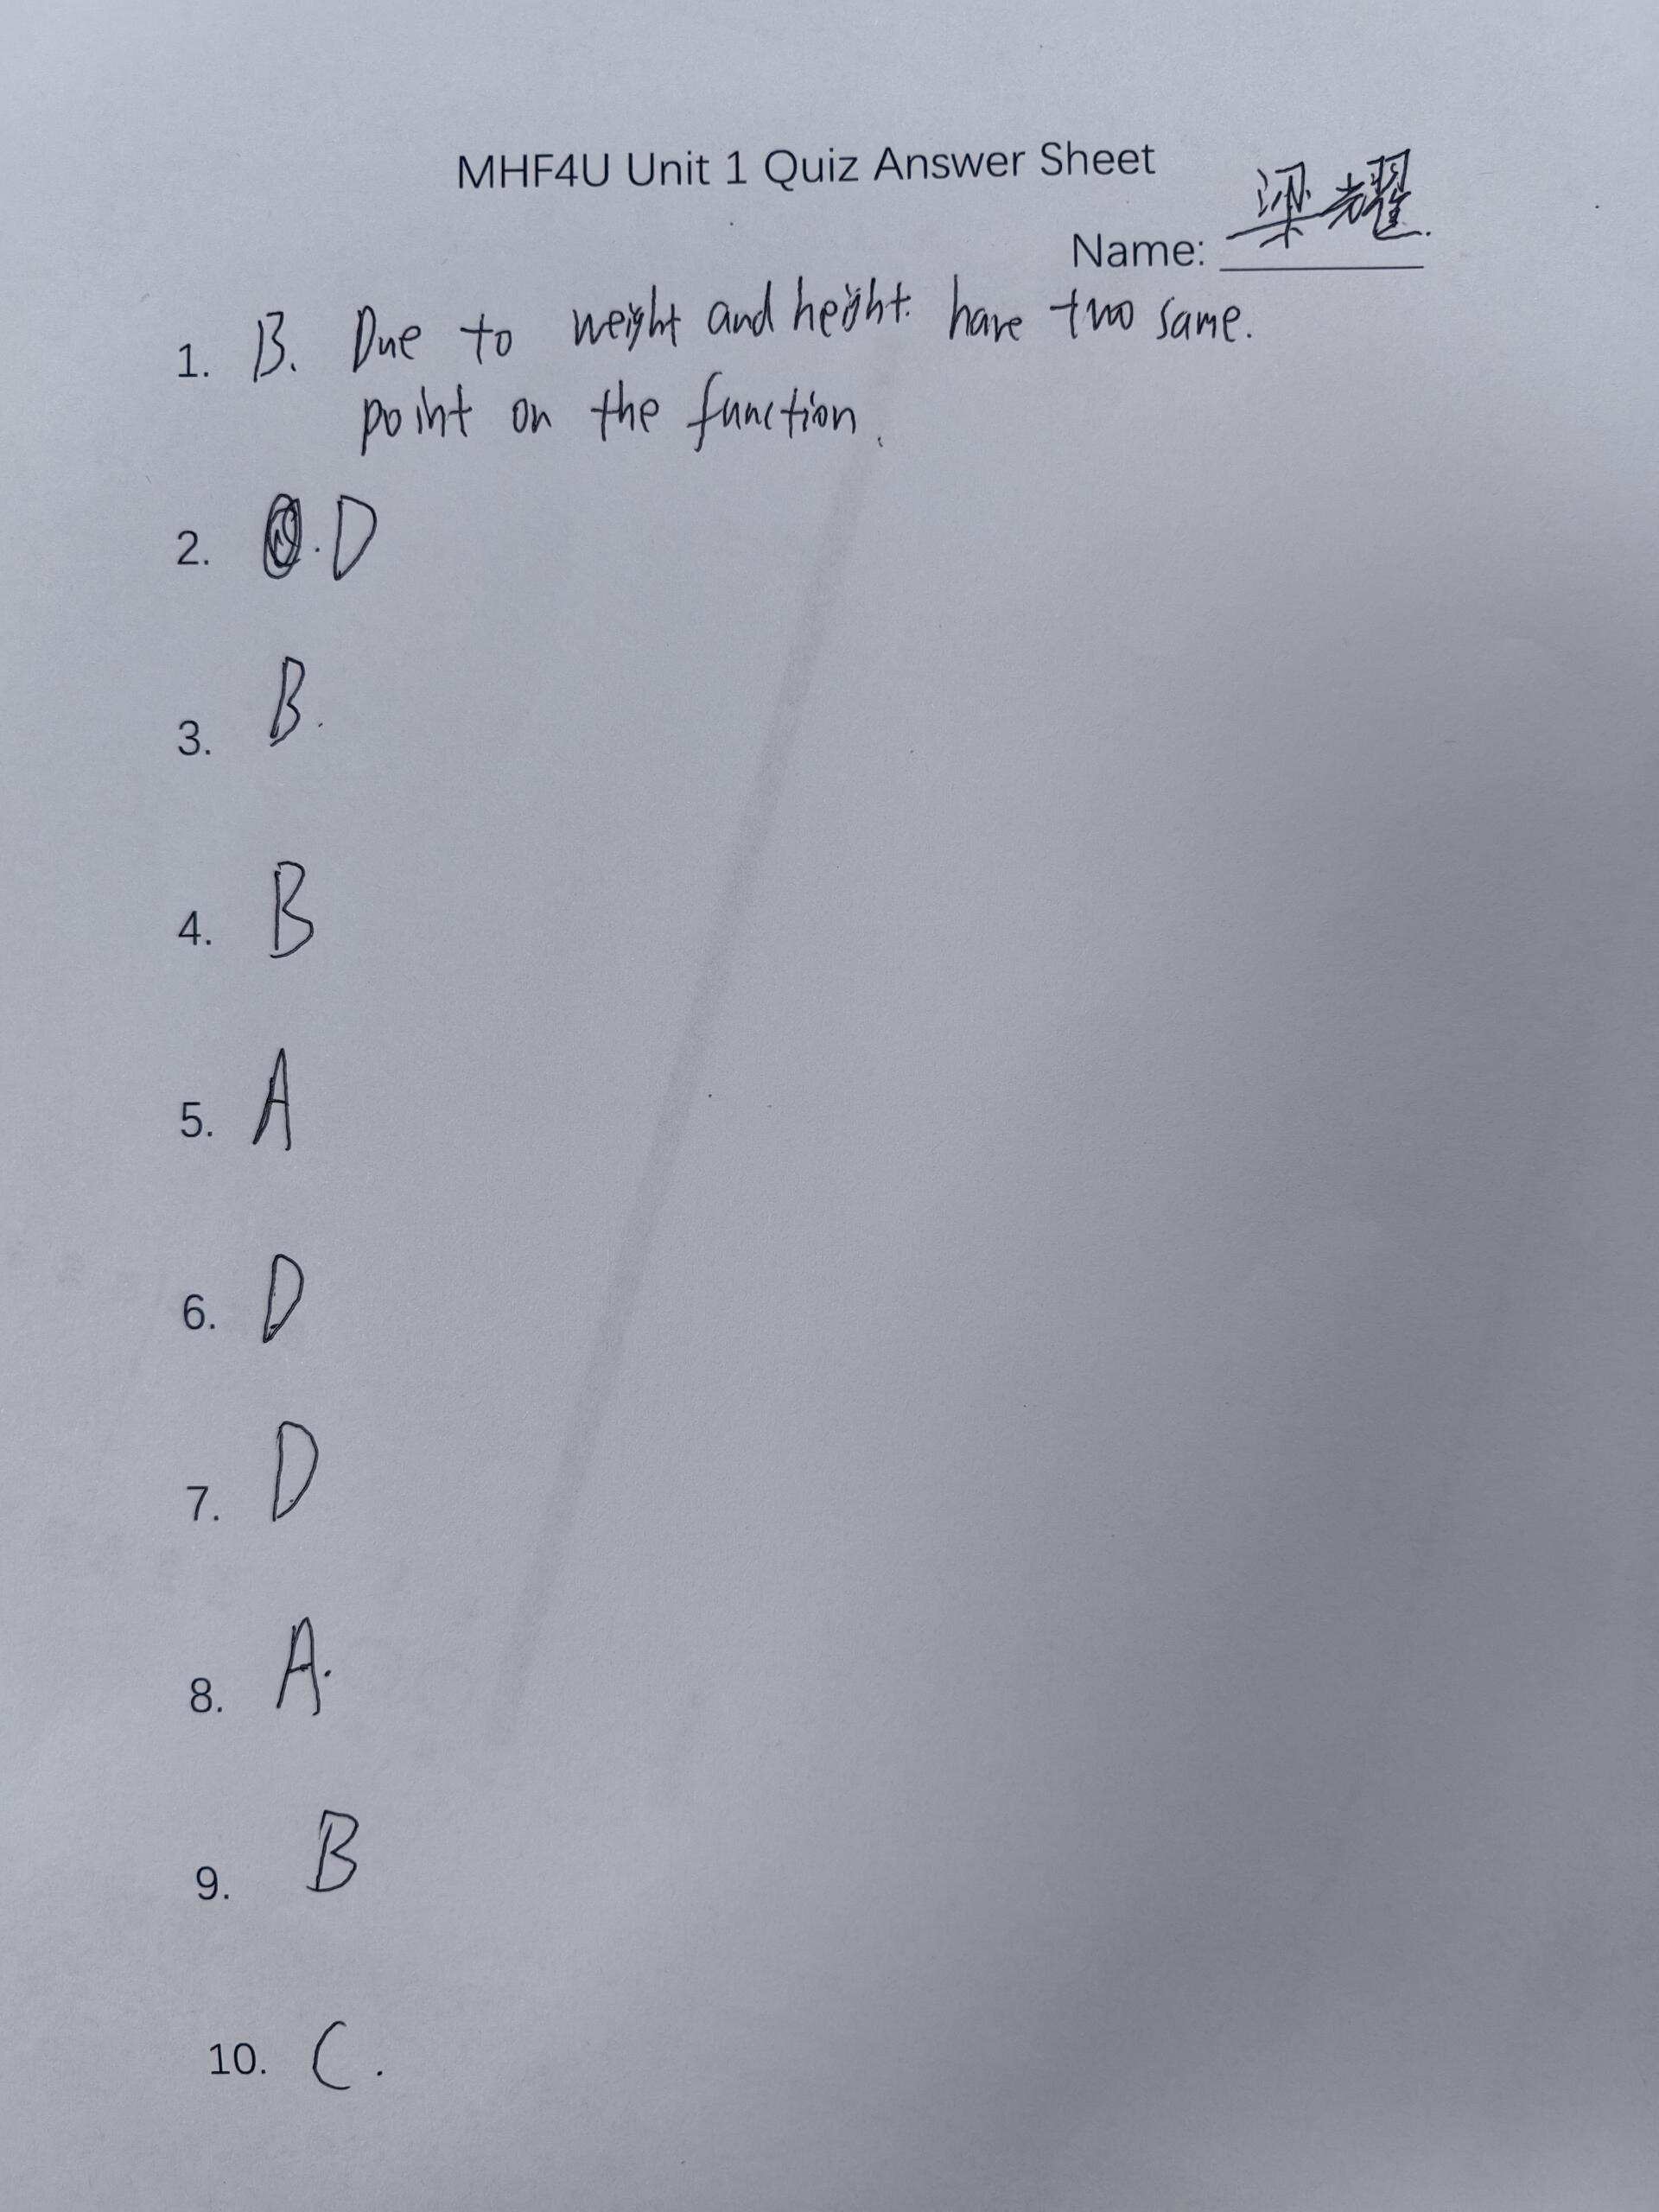 MHF4U Unit 1 Quiz Answer Sheet
Name: 梁耀
1. B. Due to weight and height have two same.
point on the function.
2. D
3. B.
4. B
5. A
6. D
7. D
8. A.
9. B
10. C.